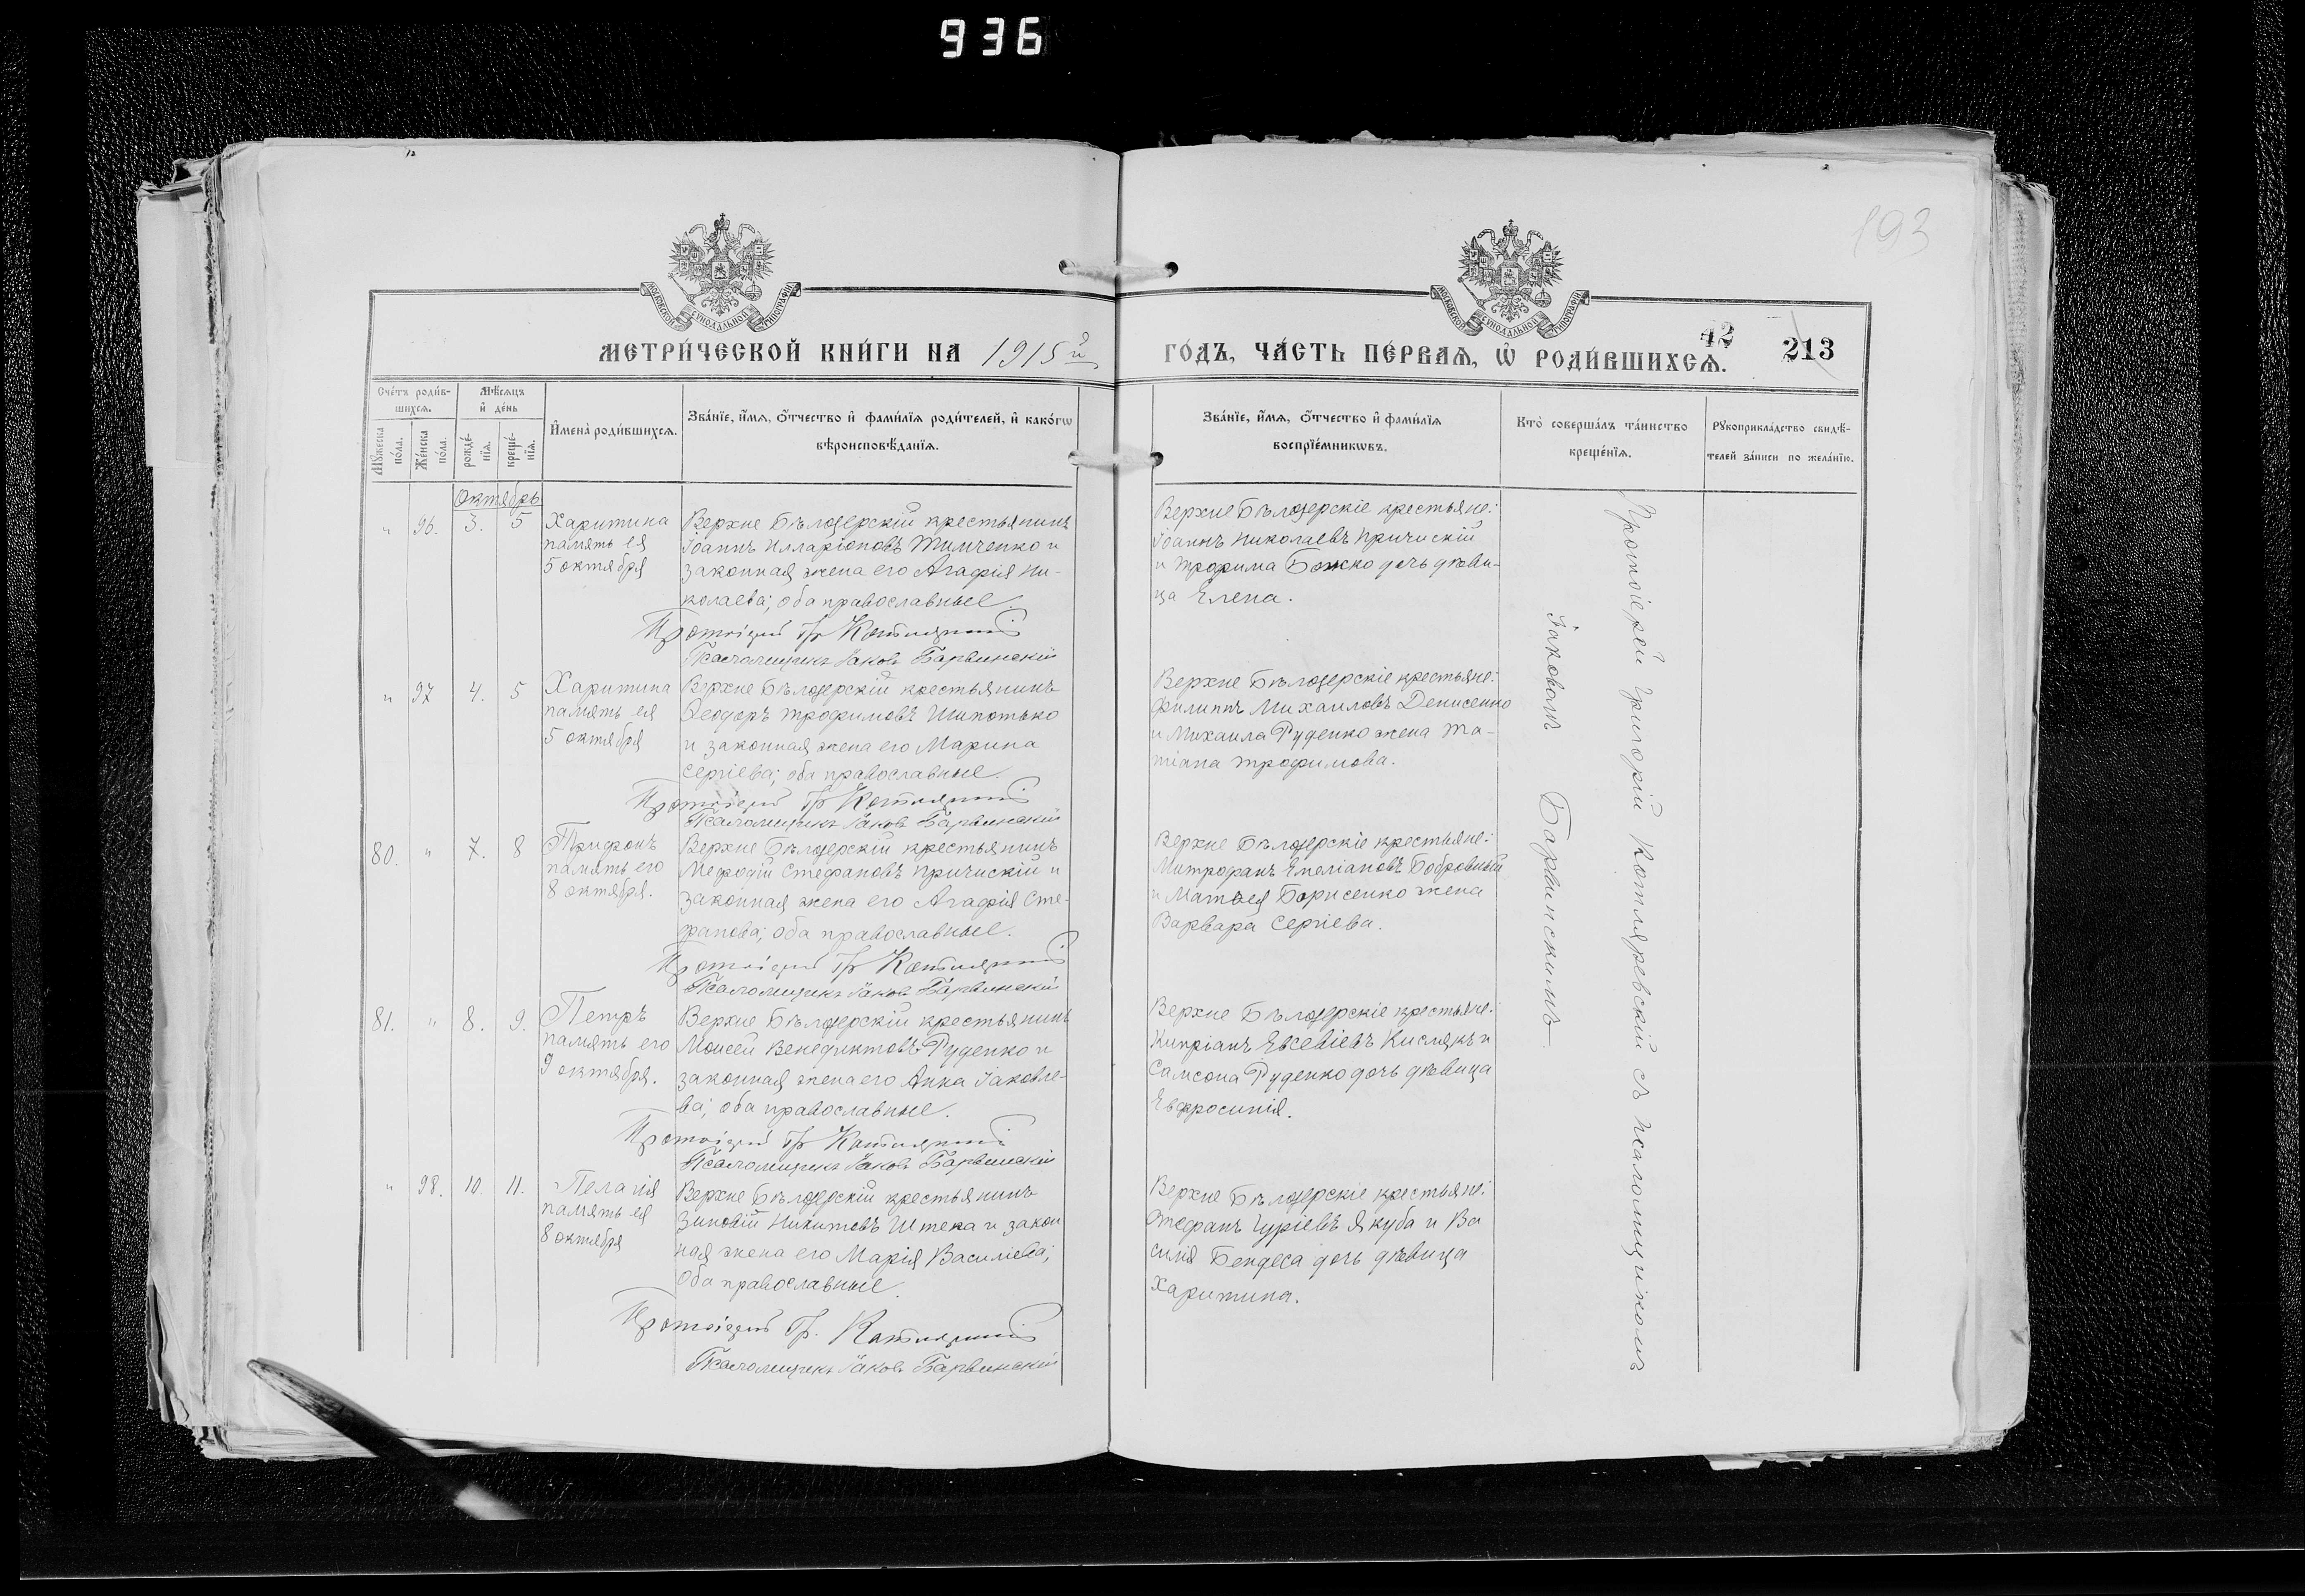 936
193
МОСКОВСКОЙ СУНОДАЛЬНОЙ ТИПОГРАФІИ
МОСКОВСКОЙ СУНОДАЛЬНОЙ ТИПОГРАФІИ
МЕТРИ́ЧЕСКОЙ КНИ́ГИ НА 1915й
ГО́ДЪ, ЧА́СТЬ ПЕ́РВАѦ, Ѡ҆ РОДИ́ВШИХСѦ.
42
213
Сче́тъ роди́в-
шихсѧ.
Мѣ́сѧцъ
и҆ де́нь
Мꙋ́жеска
по́ла.
Же́нска
по́ла.
рожде́-
нїѧ.
креще́-
нїѧ.
И҆мена̀ роди́вшихсѧ.
Зва́нїе, и҆́мѧ, ѻ҆́тчество и҆ фами́лїѧ роди́телей, и҆ како́гѡ
вѣроисповѣ́данїѧ.
Зва́нїе, и҆́мѧ, ѻ҆́тчество и҆ фами́лїѧ
воспрїе́мникѡвъ.
Кто̀ соверша́лъ та́инство
креще́нїѧ.
Рꙋкоприкла́дство свидѣ́-
телей за́писи по жела́нїю.
Октябрь
" 96. 3. 5
Харитина
память ея
5 октября
Верхне Бѣлозерскій крестьянинъ
Іоаннъ Илларіоновъ Тимченко и
законная жена его Агафія Ни-
колаева; оба православные.
Протоіерей Гр Котляревскій
Псаломщикъ Іаковъ Барвинскій
Верхне Бѣлозерскіе крестьяне:
Іоаннъ Николаевъ Притискій
и Трофима Божко дочь дѣви-
ца Елена.
" 97 4. 5
Харитина
память ея
5 октября
Верхне Бѣлозерскій крестьянинъ
Ѳеодоръ Трофимовъ Шипотько
и законная жена его Марина
Сергіева; оба православные.
Протоіерей Гр Котляревскій
Псаломщикъ Іаковъ Барвинскій
Верхне Бѣлозерскіе крестьяне:
Филиппъ Михаиловъ Денисенко
и Михаила Руденко жена Та-
тіана Трофимова.
80. " 7. 8
Трифонъ
память его
8 октября.
Верхне Бѣлозерскій крестьянинъ
Мефодій Стефановъ Притискій и
законная жена его Агафія Сте-
фанова; оба православные.
Протоіерей Гр Котляревскій
Псаломщикъ Іаковъ Барвинскій
Верхне Бѣлозерскіе крестьяне:
Митрофанъ Емеліановъ Бобровный
и Матѳея Борисенко жена
Варвара Сергіева.
81. " 8. 9.
Петръ
память его
9 октября.
Верхне Бѣлозерскій крестьянинъ
Моисей Венедиктовъ Руденко и
законная жена его Анна Іаковле-
ва; оба православные.
Протоіерей Гр Котляревскій
Псаломщикъ Іаковъ Барвинскій
Верхне Бѣлозерскіе крестьяне:
Кипріанъ Евсевіевъ Кислякъ и
Самсона Руденко дочь дѣвица
Евфросинія.
" 98. 10. 11.
Пелагія
память ея
8 октября
Верхне Бѣлозерскій крестьянинъ
Зиновій Никитовъ Штепа и закон
ная жена его Марія Василіева;
оба православные.
Протоіерей Гр. Котляревскій
Псаломщикъ Іаковъ Барвинскій
Верхне Бѣлозерскіе крестьяне:
Стефанъ Гуріевъ Якуба и Ва
силія Бендеса дочь дѣвица
Харитина.
Протоіерей Григорій Котляревскій съ псаломщикомъ
Іаковомъ Барвинскимъ